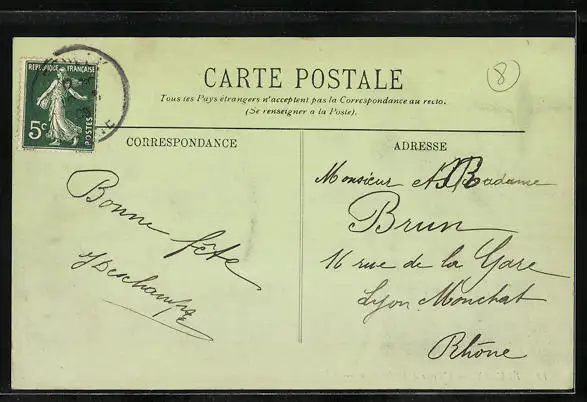 REPUBLIQUE FRANÇAISE
5c
POSTES
8
CARTE POSTALE
Tous les Pays étrangers n'acceptent pas la Correspondance au recto.
(Se renseigner à la Poste).
CORRESPONDANCE
Bonne fête
Deschamps
ADRESSE
Monsieur Madame
Brun
16 rue de la Gare
Lyon Monchat
Rhône